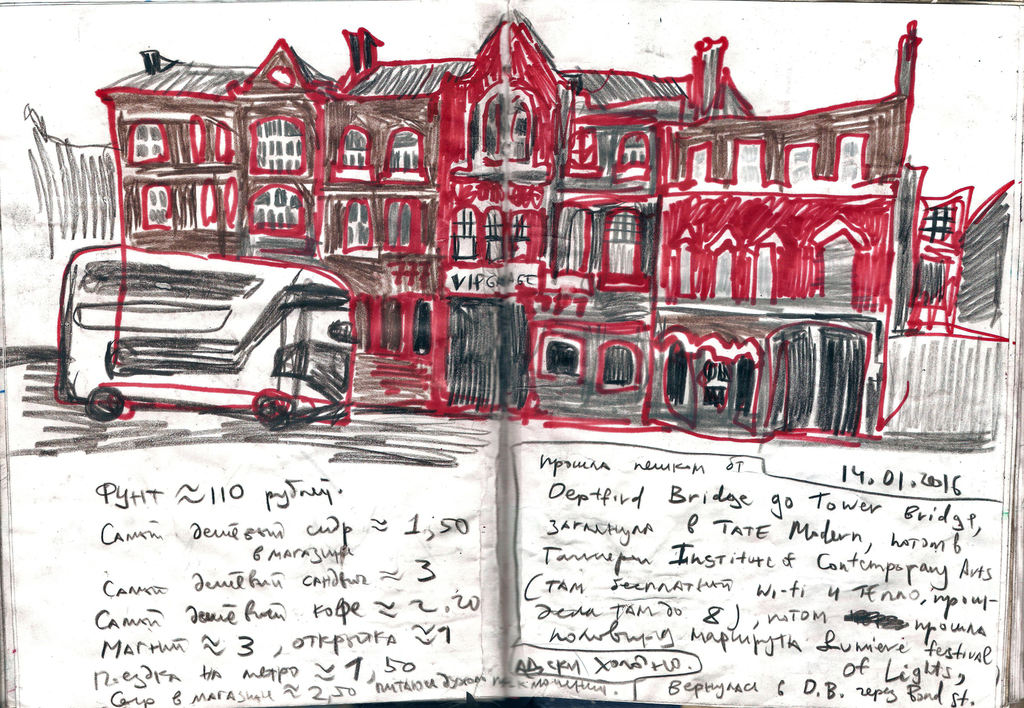 VIP GARAGE
ФУНТ ≈ 110 рублей.
Самый дешёвый сидр ≈ 1,50
в магазине
Самый дешёвый сандвич ≈ 3
Самый дешёвый кофе ≈ 2.20
Магнит ≈ 3, открытка ≈ 1
Поездка на метро ≈ 1,50
Сыр в магазине ≈ 2,50
прошла пешком от
14.01.2016
Deptford Bridge до Tower Bridge,
заглянула в TATE Modern, потом в
Institute of Contemporary Arts
(там бесплатный wi-fi и тепло, про-
до 8), потом прошла
половину маршрута Lumiere festival
of Lights,
адски холодно.
Вернулась в D.B. через Bond St.